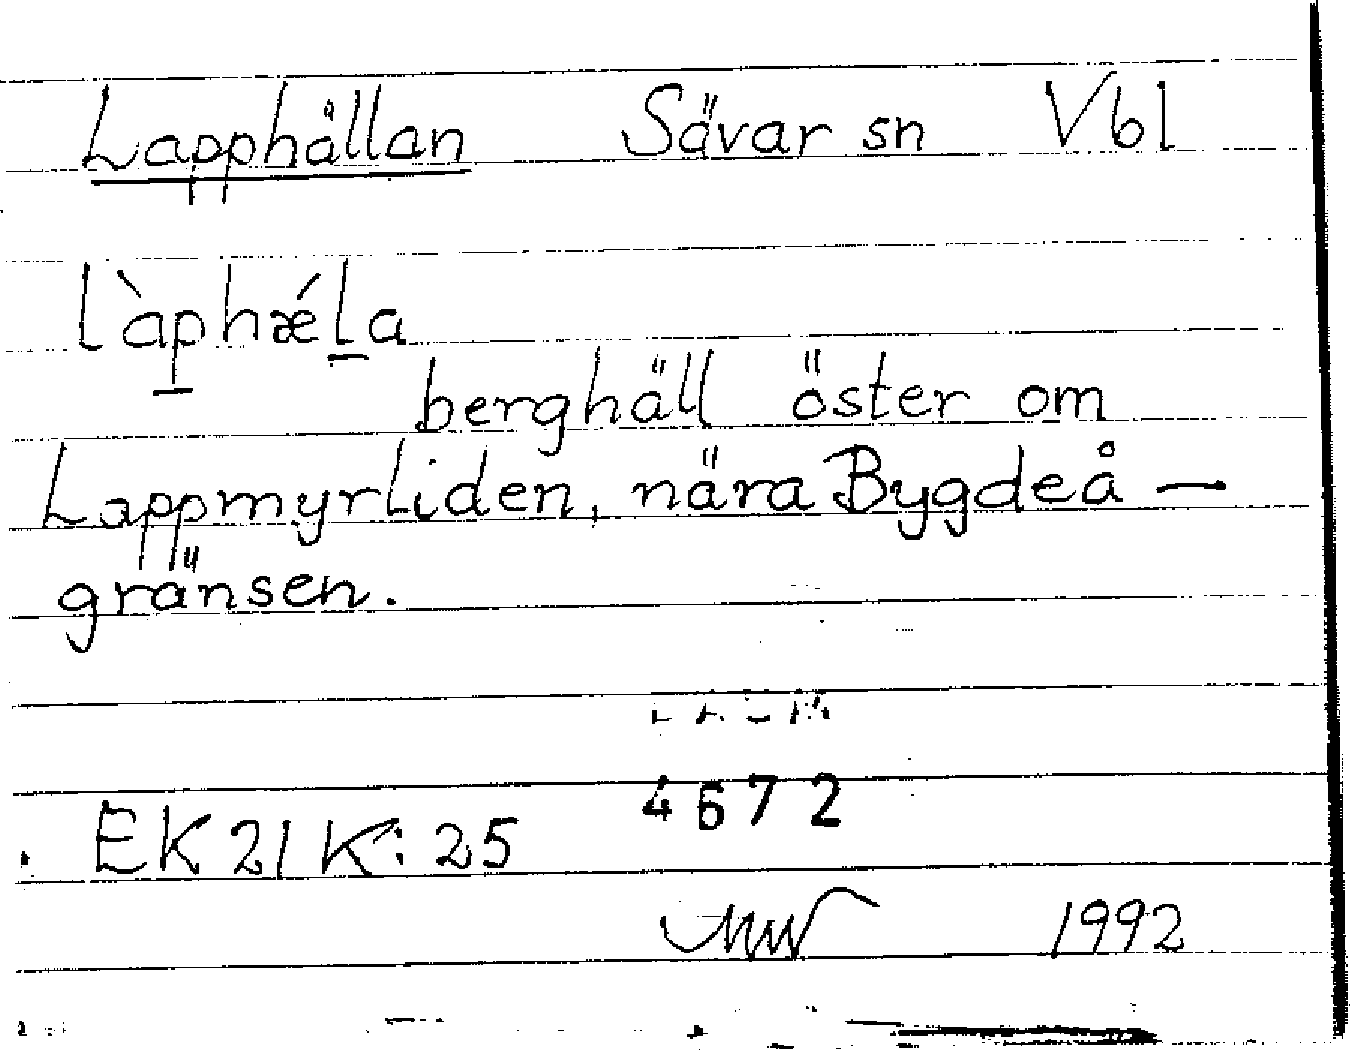 Lapphällan Sävar sn Vbl
làp̠hǽl̠a
berghäll öster om
Lappmyrliden, nära Bygdeå—
gränsen.
4672
EK 21 K: 25
1992